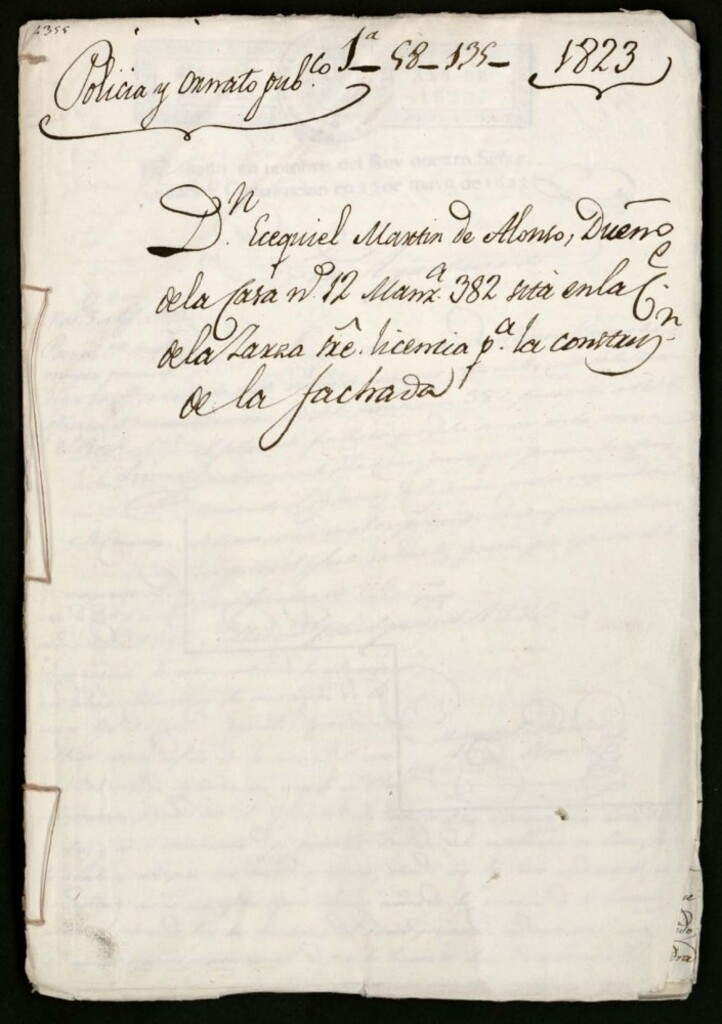 4355
Policia y Ornato pub.co 1ª 58-135- 1823
Dn. Ecequiel Martin de Alonso, Dueño
de la Casa nº 12 Manz.ª 382 sita en la C.e
de la Zarza sre. licencia p.ª la construy.n
de la fachada